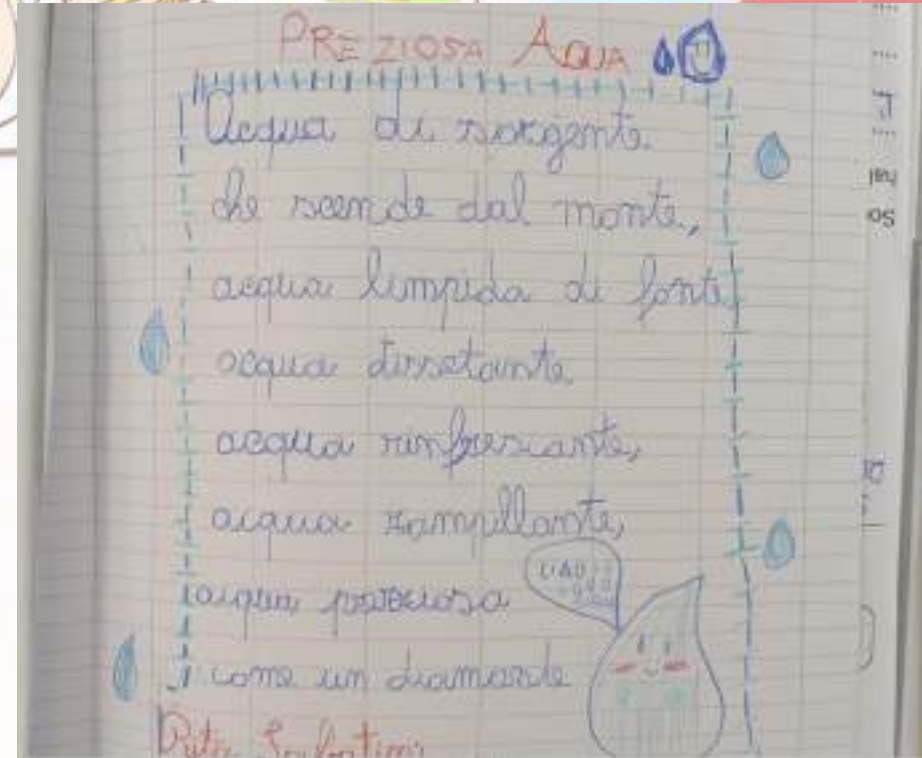 PREZIOSA AQUA
Acqua di sorgente
che scende dal monte,
acqua limpida di fonte,
acqua dissetante
acqua rinfrescante,
acqua zampillante,
acqua preziosa
CIAO
come un diamante
Rita Sabatini